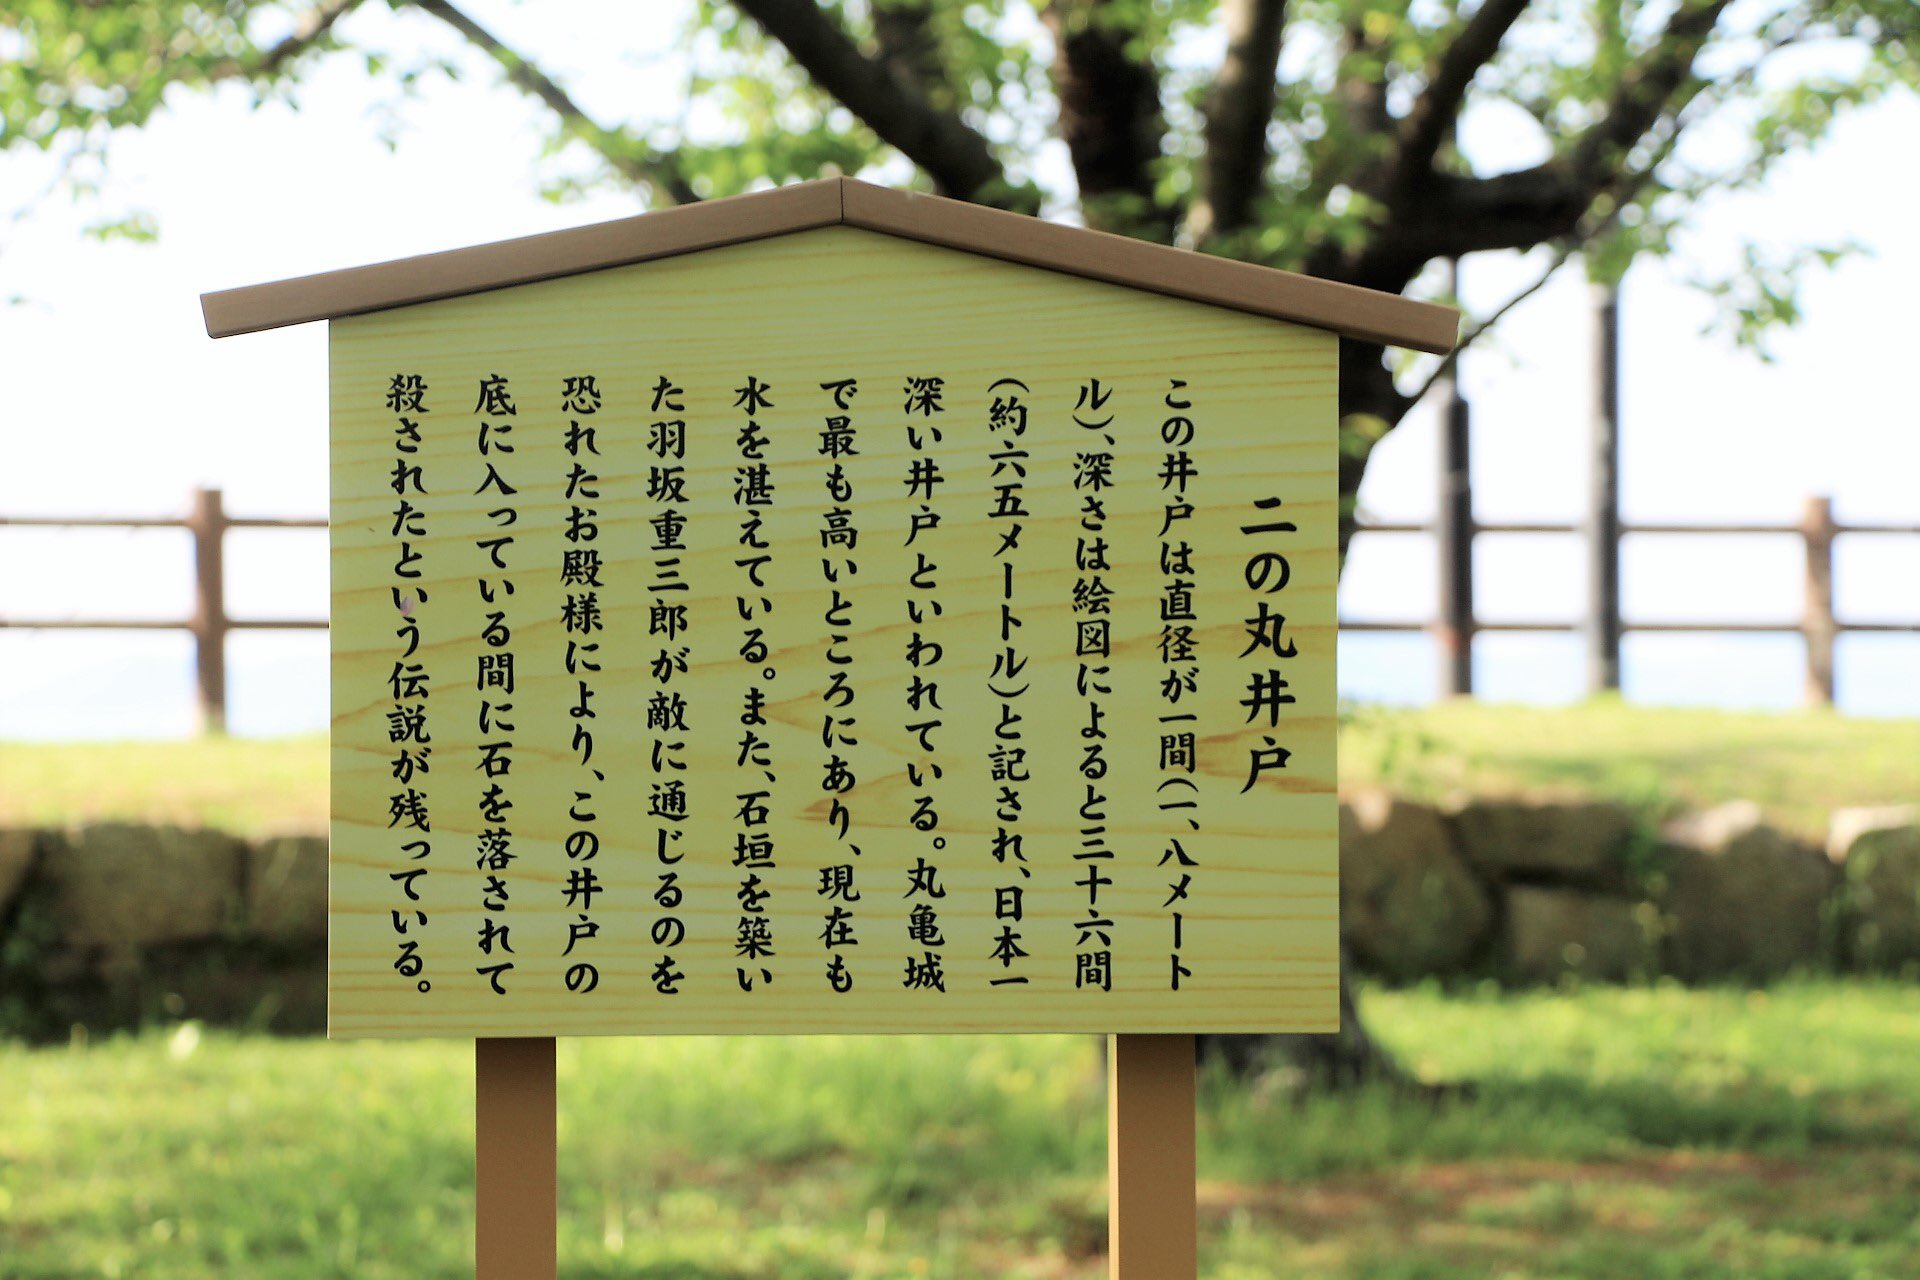 二の丸井戸
この井戸は直径が一間(一、八メート
ル)、深さは絵図によると三十六間
(約六五メートル)と記され、日本一
深い井戸といわれている。丸亀城
で最も高いところにあり、現在も
水を湛えている。また、石垣を築い
た羽坂重三郎が敵に通じるのを
恐れたお殿様により、この井戸の
底に入っている間に石を落されて
殺されたという伝説が残っている。